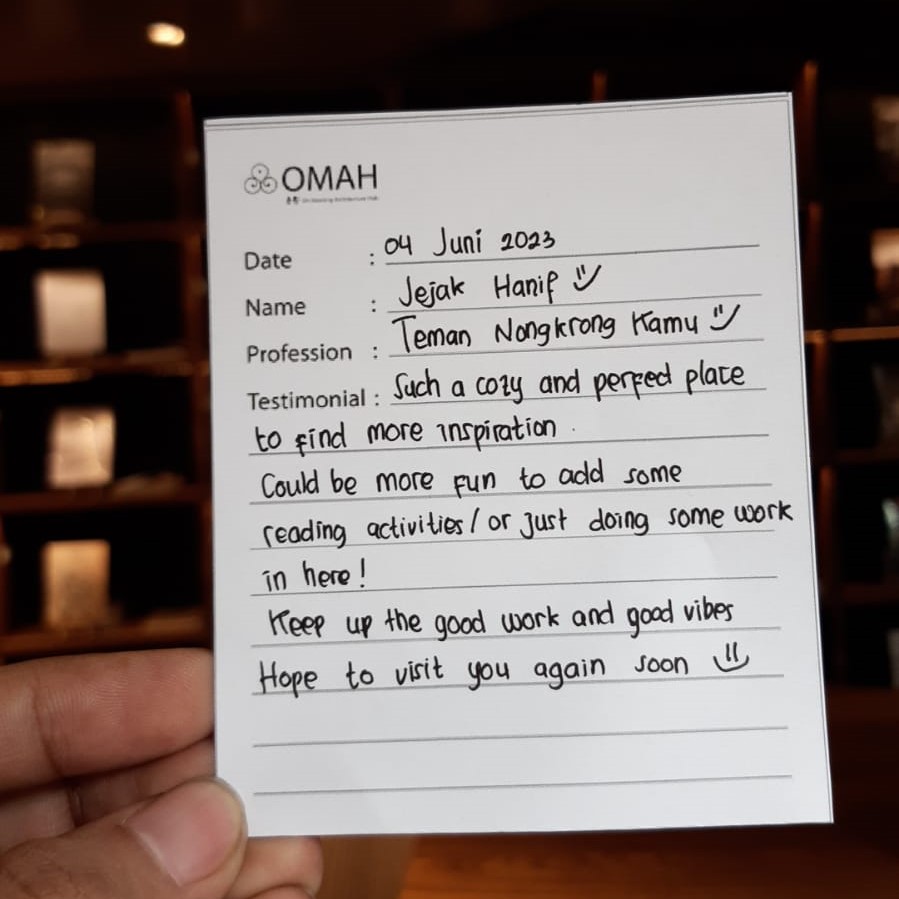 OMAH
Date : 04 Juni 2023
Name : Jejak Hanif
Profession : Teman Nongkrong Kamu
Testimonial : Such a cozy and perfect place
to find more inspiration.
Could be more fun to add some
reading activities/or just doing some work
in here!
Keep up the good work and good vibes
Hope to visit you again soon